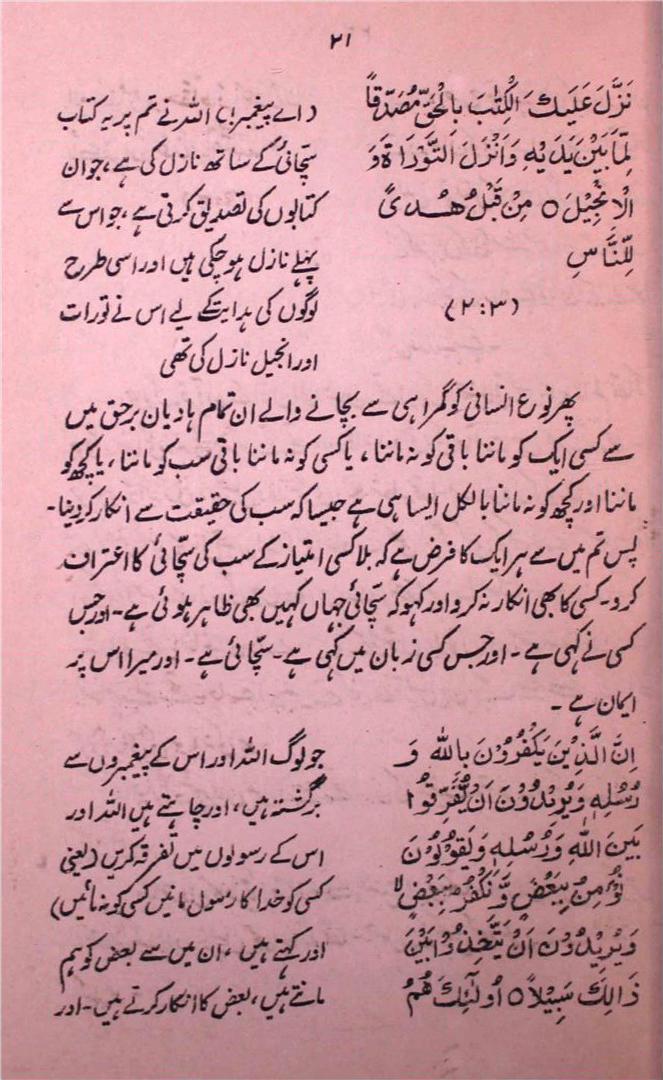 ۲۱
نَزَّلَ عَلَيْكَ الْكِتٰبَ بِالْحَقِّ مُصَدِّقًا
لِّمَا بَيْنَ يَدَيْهِ وَاَنْزَلَ التَّوْرَاةَ وَ
الْاِنْجِيْلَ ○ مِنْ قَبْلُ هُدًى
لِّلنَّاسِ
(۲:۳)
(اے پیغمبر!) اللہ نے تم پر یہ کتاب
سچّائی کے ساتھ نازل کی ہے، جو ان
کتابوں کی تصدیق کرتی ہے، جو اس سے
پہلے نازل ہو چکی ہیں اور اسی طرح
لوگوں کی ہدایت کے لیے اس نے تورات
اور انجیل نازل کی تھی
پھر نوع انسانی کو گمراہی سے بچانے والے ان تمام ہادیان برحق میں
سے کسی ایک کو ماننا باقی کو نہ ماننا، یا کسی کو نہ ماننا باقی سب کو ماننا، یا کچھ کو
ماننا اور کچھ کو نہ ماننا بالکل ایسا ہی ہے جیسا کہ سب کی حقیقت سے انکار کر دینا۔
پس تم میں سے ہر ایک کا فرض ہے کہ بلا کسی امتیاز کے سب کی سچّائی کا اعتراف
کرو۔ کسی کا بھی انکار نہ کرو اور کہو کہ سچّائی جہاں کہیں بھی ظاہر ہوئی ہے۔ اور جس
کسی نے کہی ہے۔ اور جس کسی زبان میں کہی ہے۔ سچّائی ہے۔ اور میرا اس پر
ایمان ہے۔
اِنَّ الَّذِيْنَ يَكْفُرُوْنَ بِاللّٰهِ وَ
رُسُلِهٖ وَيُرِيْدُوْنَ اَنْ يُّفَرِّقُوْا
بَيْنَ اللّٰهِ وَرُسُلِهٖ وَيَقُوْلُوْنَ
نُؤْمِنُ بِبَعْضٍ وَّنَكْفُرُ بِبَعْضٍ لا
وَيُرِيْدُوْنَ اَنْ يَّتَّخِذُوْا بَيْنَ
ذَالِكَ سَبِيْلاً ○ اُولٰٓئِكَ هُمُ
جو لوگ اللہ اور اس کے پیغمبروں سے
برگشتہ ہیں، اور چاہتے ہیں اللہ اور
اس کے رسولوں میں تفرقہ کریں (یعنی
کسی کو خدا کا رسول مانیں کسی کو نہ مانیں)
اور کہتے ہیں، ان میں سے بعض کو ہم
مانتے ہیں، بعض کا انکار کرتے ہیں۔ اور